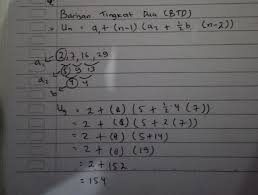 Barisan Tingkat Dua (BTD)
Un = a₁ + (n-1) (a₂ + ½ b (n-2))
a₁ 2, 7, 16, 29
a₂ 5 9 13
b 4 4
U₉ = 2 + (8) (5 + ½ · 4 (7))
= 2 + (8) (5 + 2 (7))
= 2 + (8) (5 + 14)
= 2 + (8) (19)
= 2 + 152
= 154